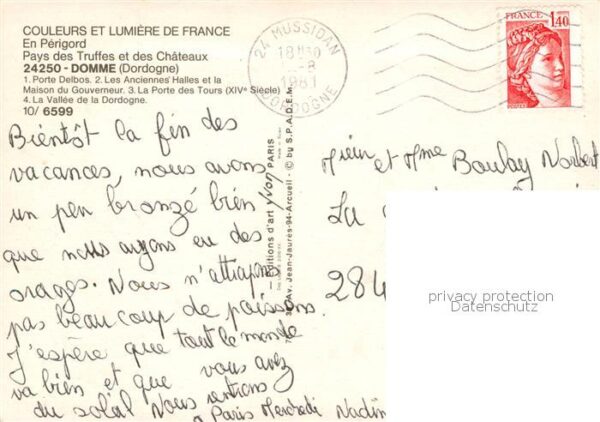 COULEURS ET LUMIÈRE DE FRANCE
En Périgord
Pays des Truffes et des Châteaux
24250 - DOMME (Dordogne)
1. Porte Delbos. 2. Les Anciennes Halles et la
Maison du Gouverneur. 3. La Porte des Tours (XIVe Siècle)
4. La Vallée de la Dordogne.
10/ 6599
Bientôt la fin des
vacances, nous avons
un peu bronzé bien
que nous ayons eu des
orages. Nous n'attrapons
pas beaucoup de poissons.
J'espère que tout le monde
va bien et que vous avez
du soleil Nous rentrons
à Paris Mercredi Nadin
Editions d'art Yvon PARIS
Av. Jean-Jaurès-94-Arcueil - © by S.P.A.D.E.M.
24 MUSSIDAN
18H30
-8
1981
DORDOGNE
FRANCE
1,40
Mieur et Mme Boulay Norbert
La
284
privacy protection
Datenschutz